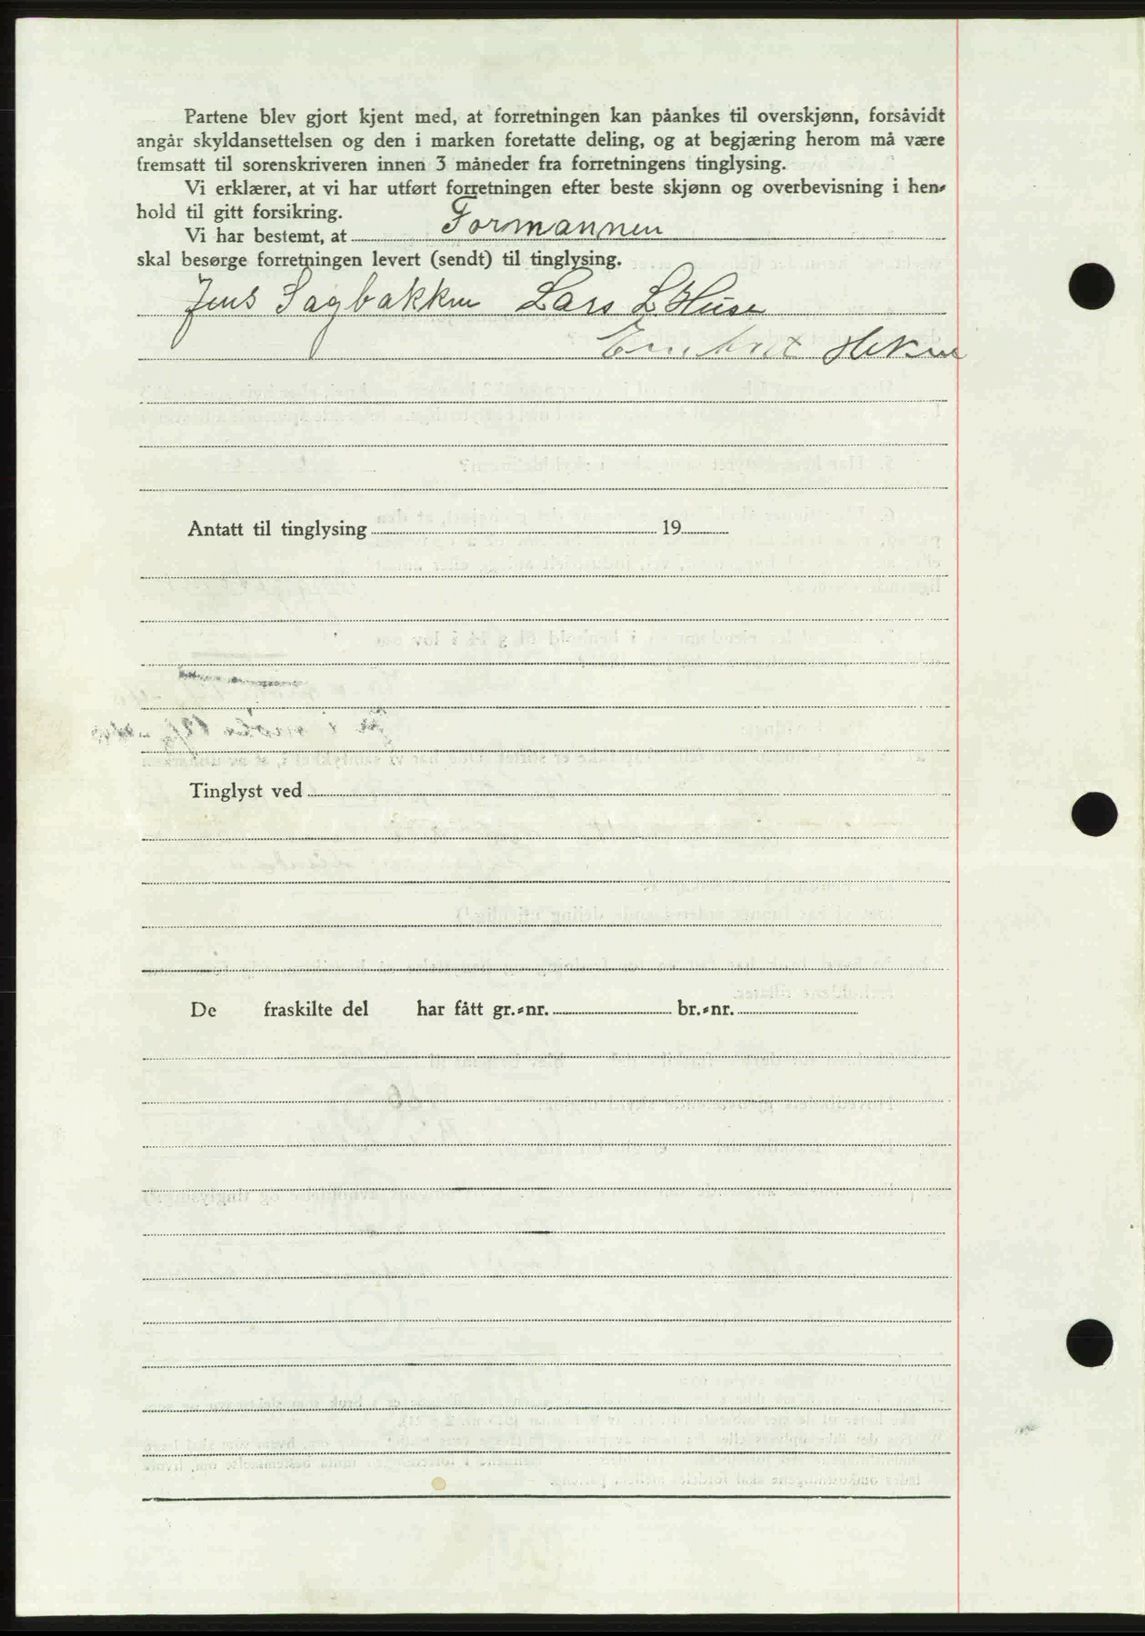 Partene blev gjort kjent med, at forretningen kan påankes til overskjønn, forsåvidt
angår skyldansettelsen og den i marken foretatte deling, og at begjæring herom må være
fremsatt til sorenskriveren innen 3 måneder fra forretningens tinglysing.
Vi erklærer, at vi har utført forretningen efter beste skjønn og overbevisning i hen-
hold til gitt forsikring.
Vi har bestemt, at Formannen
skal besørge forretningen levert (sendt) til tinglysing.
Jens Sagbakken Lars L. Huse
Antatt til tinglysing 19
Tinglyst ved
De fraskilte del har fått gr.-nr. br.-nr.